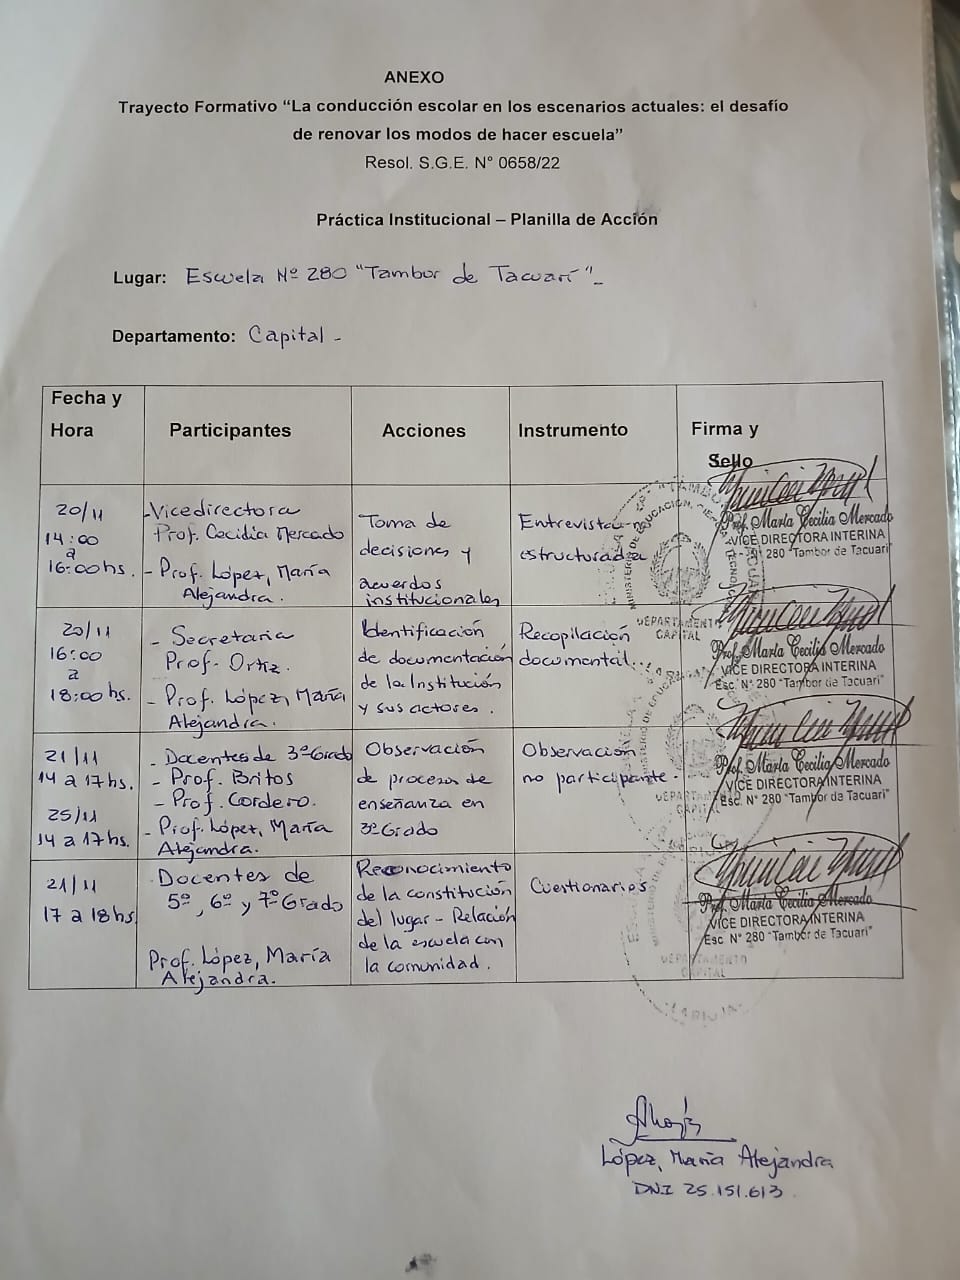 ANEXO
Trayecto Formativo “La conducción escolar en los escenarios actuales: el desafío
de renovar los modos de hacer escuela”
Resol. S.G.E. N° 0658/22
Práctica Institucional – Planilla de Acción
Lugar: Escuela Nº 280 "Tambor de Tacuarí"-
Departamento: Capital -
Fecha y
Hora
Participantes
Acciones
Instrumento
Firma y
Sello
20/11
14:00
a
16:00 hs.
- Vicedirectora
Prof. Cecilia Mercado
- Prof. López, María
Alejandra.
Toma de
decisiones y
acuerdos
institucionales
Entrevista
estructurada
Prof. María Cecilia Mercado
VICE DIRECTORA INTERINA
280 "Tambor de Tacuari"
20/11
16:00
a
18:00 hs.
- Secretaria
Prof. Ortiz.
- Prof. López, María
Alejandra.
Identificación
de documentación
de la Institución
y sus actores.
Recopilación
documental...
DEPARTAMENTO
CAPITAL
Prof. María Cecilia Mercado
VICE DIRECTORA INTERINA
Esc. N° 280 "Tambor de Tacuari"
21/11
14 a 17 hs.
25/11
14 a 17 hs.
- Docentes de 3º Grado
- Prof. Britos
- Prof. Cordero.
- Prof. López, María
Alejandra.
Observación
de procesos de
enseñanza en
3º Grado
Observación
no participante.
Prof. María Cecilia Mercado
VICE DIRECTORA INTERINA
Esc. N° 280 "Tambor de Tacuari"
21/11
17 a 18 hs
Docentes de
5º, 6º y 7º Grado
Prof. López, María
Alejandra.
Reconocimiento
de la constitución
del lugar - Relación
de la escuela con
la comunidad.
Cuestionarios
Prof. María Cecilia Mercado
VICE DIRECTORA INTERINA
Esc. N° 280 "Tambor de Tacuari"
DEPARTAMENTO
CAPITAL
López, María Alejandra
DNI 25.151.613